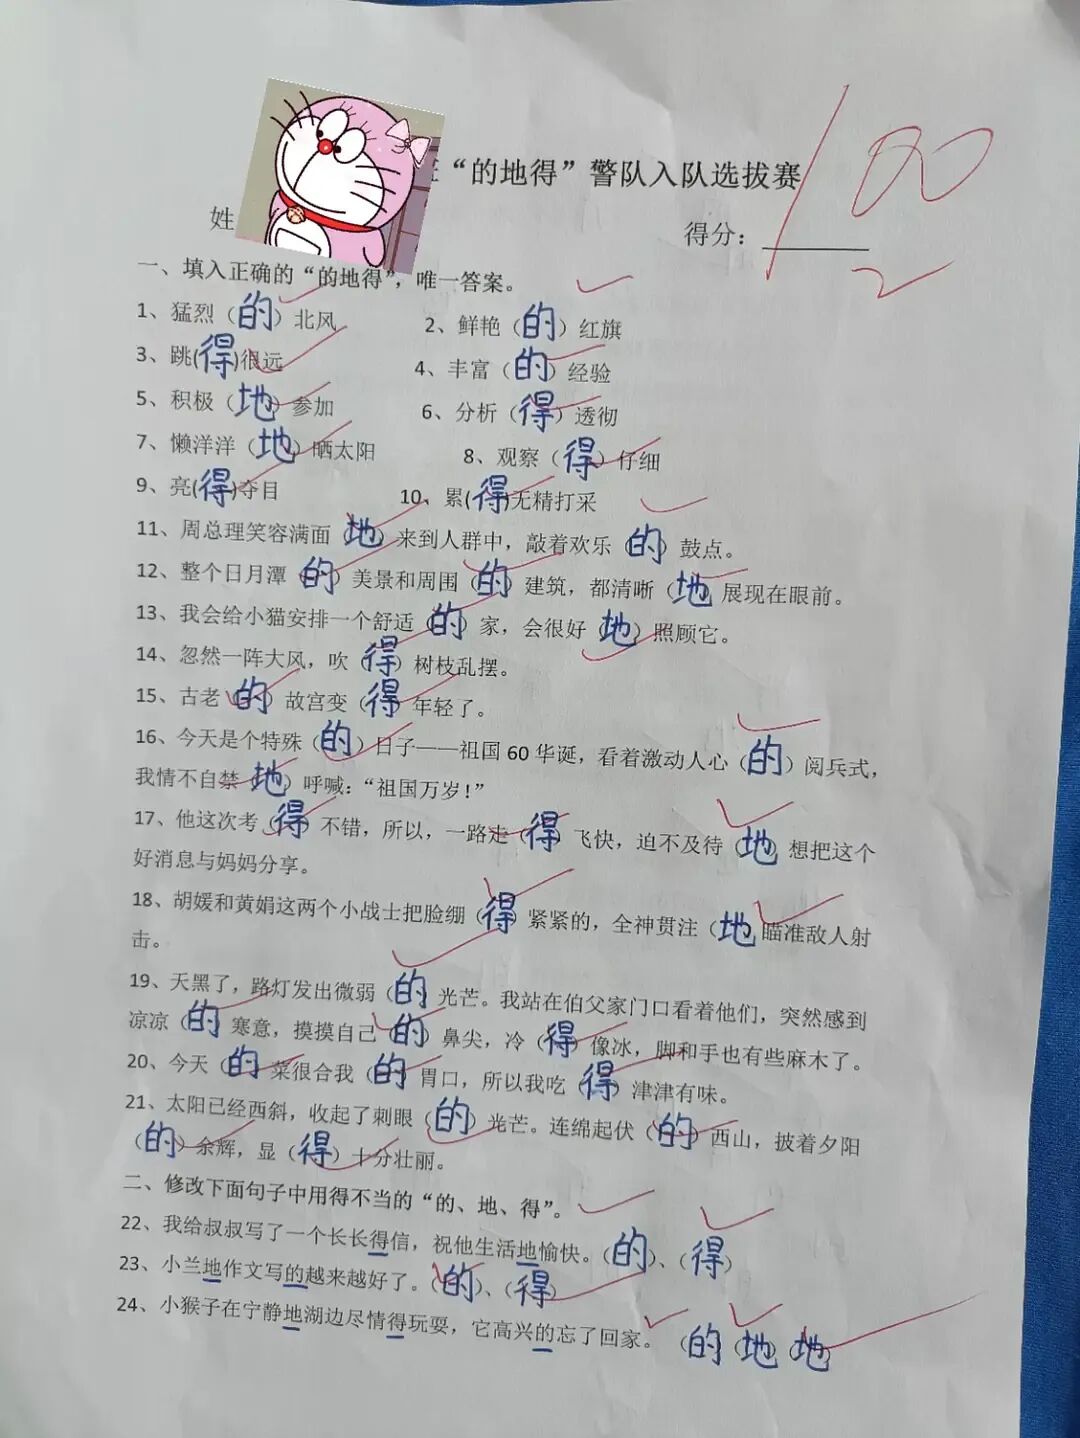 “的地得”警队入队选拔赛
姓
得分：100
一、填入正确的“的地得”，唯一答案。
1、猛烈（的）北风 2、鲜艳（的）红旗
3、跳(得)很远 4、丰富（的）经验
5、积极（地）参加 6、分析（得）透彻
7、懒洋洋（地）晒太阳 8、观察（得）仔细
9、亮(得)夺目 10、累(得)无精打采
11、周总理笑容满面（地）来到人群中，敲着欢乐（的）鼓点。
12、整个日月潭（的）美景和周围（的）建筑，都清晰（地）展现在眼前。
13、我会给小猫安排一个舒适（的）家，会很好（地）照顾它。
14、忽然一阵大风，吹（得）树枝乱摆。
15、古老（的）故宫变（得）年轻了。
16、今天是个特殊（的）日子——祖国60华诞，看着激动人心（的）阅兵式，
我情不自禁（地）呼喊：“祖国万岁！”
17、他这次考（得）不错，所以，一路走（得）飞快，迫不及待（地）想把这个
好消息与妈妈分享。
18、胡媛和黄娟这两个小战士把脸绷（得）紧紧的，全神贯注（地）瞄准敌人射
击。
19、天黑了，路灯发出微弱（的）光芒。我站在伯父家门口看着他们，突然感到
凉凉（的）寒意，摸摸自己（的）鼻尖，冷（得）像冰，脚和手也有些麻木了。
20、今天（的）菜很合我（的）胃口，所以我吃（得）津津有味。
21、太阳已经西斜，收起了刺眼（的）光芒。连绵起伏（的）西山，披着夕阳
（的）余辉，显（得）十分壮丽。
二、修改下面句子中用得不当的“的、地、得”。
22、我给叔叔写了一个长长得信，祝他生活地愉快。（的）、（得）
23、小兰地作文写的越来越好了。（的）、（得）
24、小猴子在宁静地湖边尽情得玩耍，它高兴的忘了回家。（的）（地）（地）